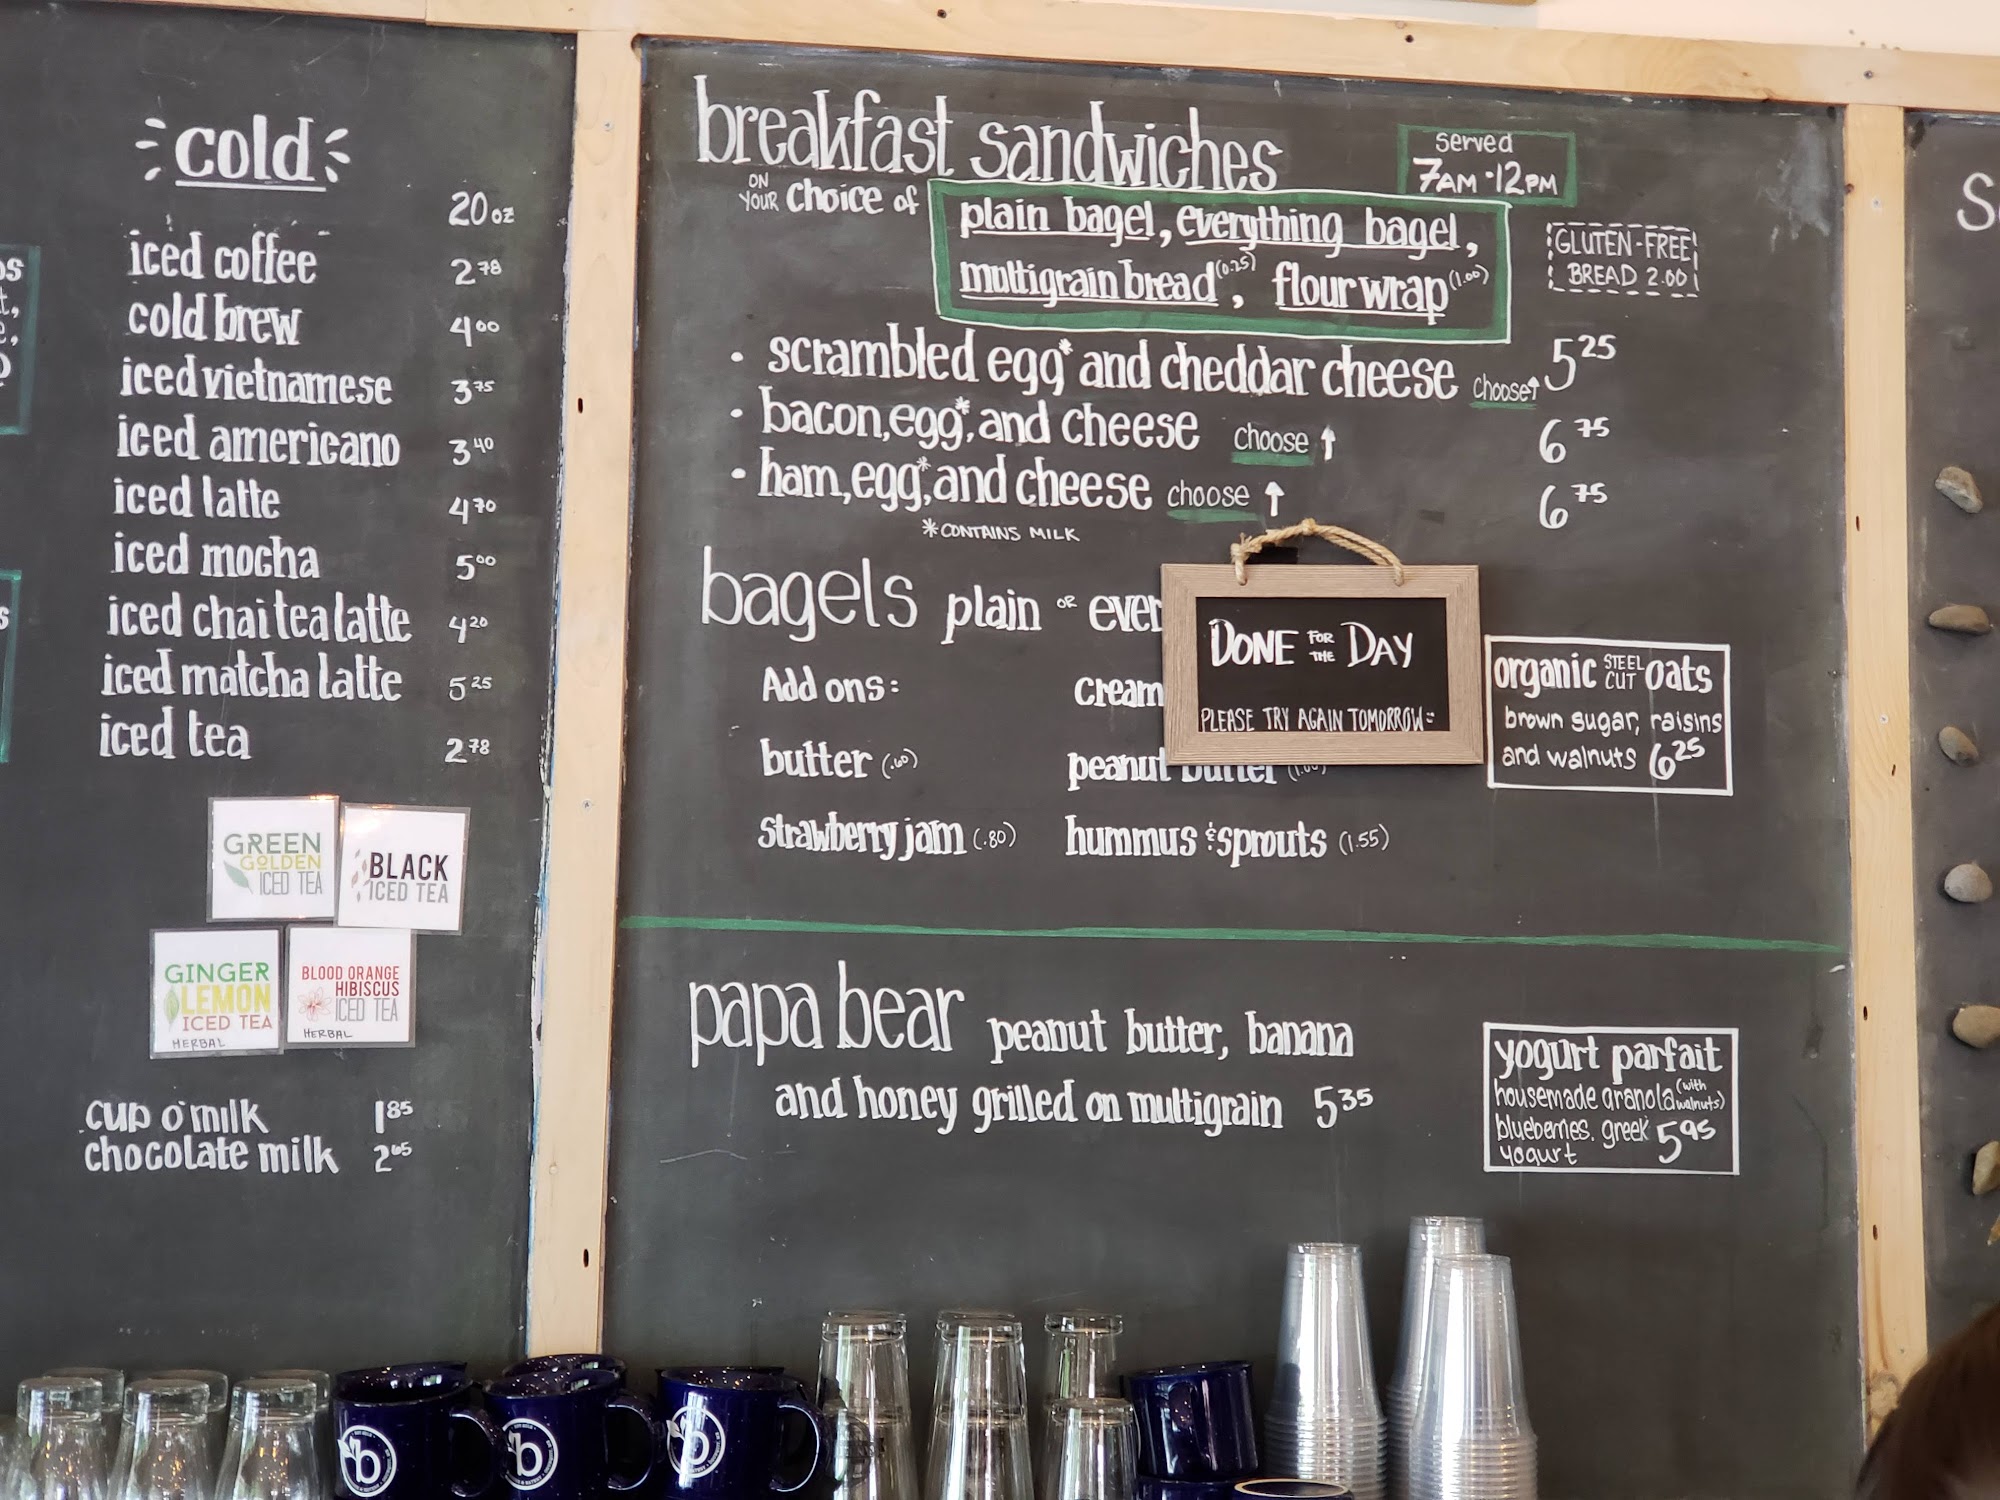 cold
20 oz
iced coffee 2.78
cold brew 4.00
iced vietnamese 3.75
iced americano 3.40
iced latte 4.70
iced mocha 5.00
iced chai tea latte 4.20
iced matcha latte 5.25
iced tea 2.78
GREEN
GOLDEN
ICED TEA
BLACK
ICED TEA
GINGER
LEMON
ICED TEA
HERBAL
BLOOD ORANGE
HIBISCUS
ICED TEA
HERBAL
cup o' milk 1.85
chocolate milk 2.65
breakfast sandwiches
served
7AM-12PM
ON YOUR choice of
plain bagel, everything bagel,
multigrain bread (0.25), flour wrap (1.00)
GLUTEN-FREE
BREAD 2.00
• scrambled egg* and cheddar cheese choose↑ 5.25
• bacon, egg*, and cheese choose ↑ 6.75
• ham, egg*, and cheese choose ↑ 6.75
*CONTAINS MILK
bagels plain OR ever
Add ons: cream
butter (.60) peanut butter (1.00)
strawberry jam (.80) hummus & sprouts (1.55)
DONE FOR THE DAY
PLEASE TRY AGAIN TOMORROW :)
organic STEEL CUT oats
brown sugar, raisins
and walnuts 6.25
papa bear peanut butter, banana
and honey grilled on multigrain 5.35
yogurt parfait
housemade granola (with walnuts)
blueberries, greek
yogurt 5.95
b
b
b